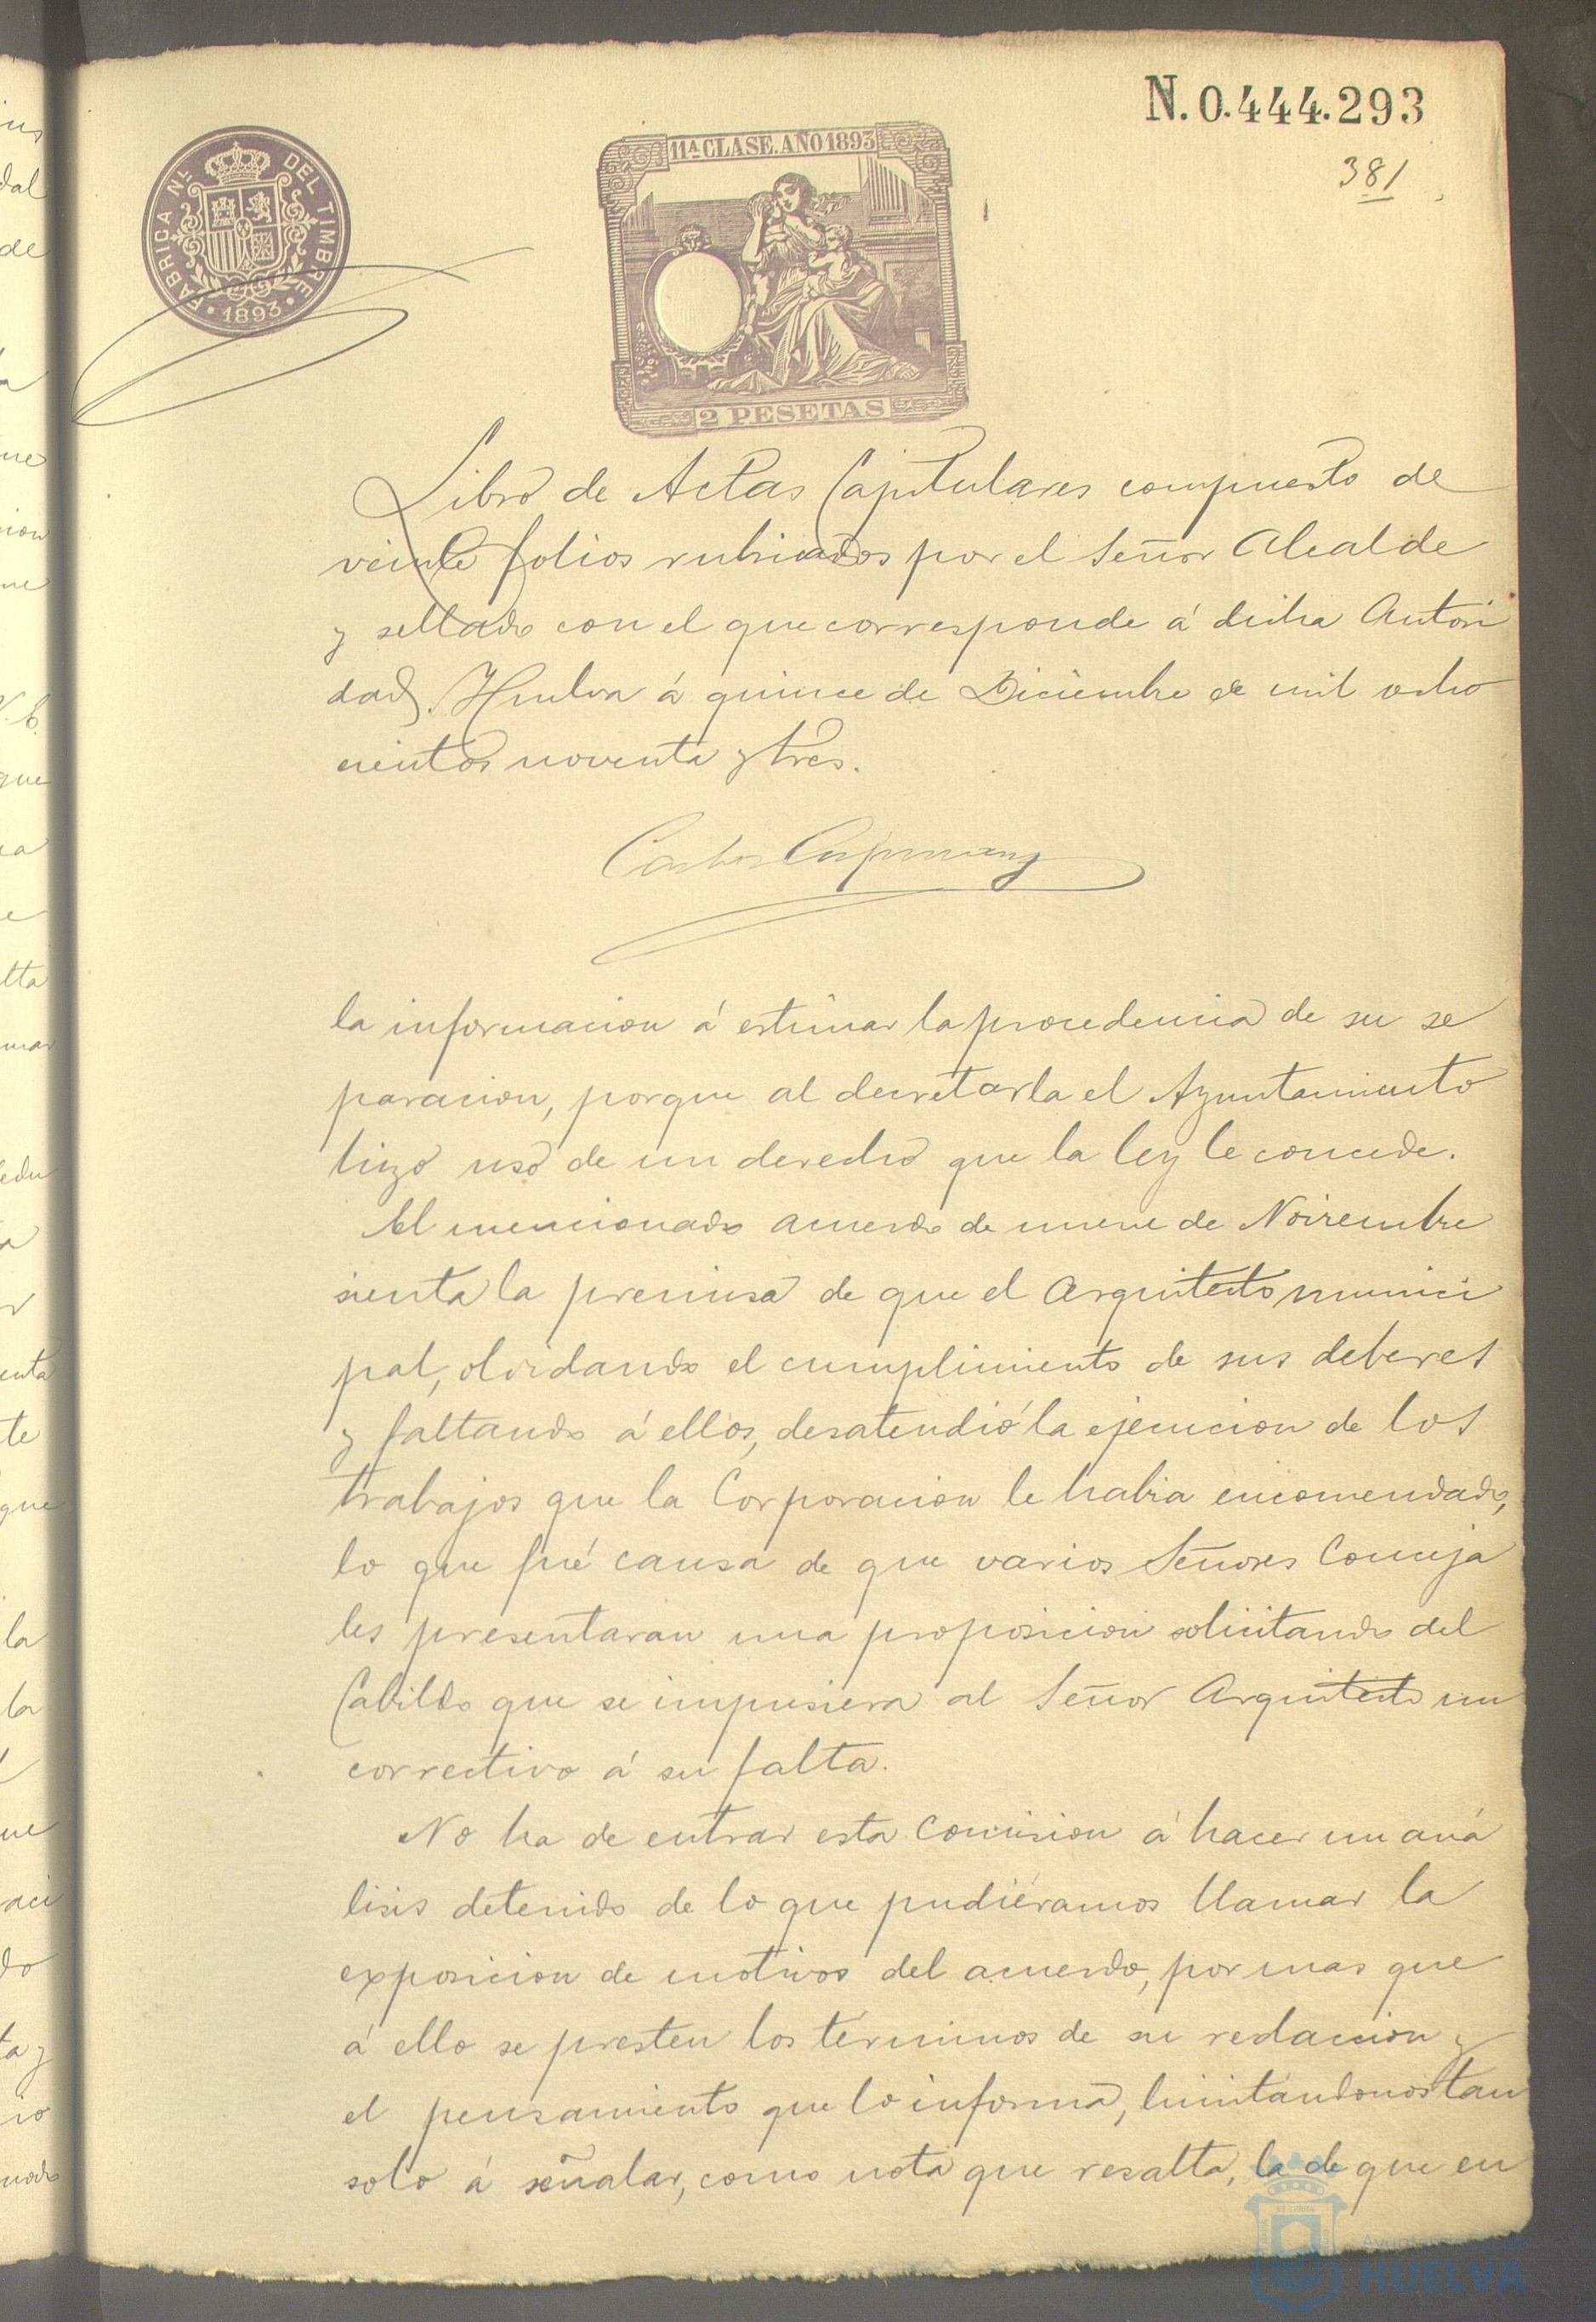 N. 0.444.293
381
FABRICA NL. DEL TIMBRE
1893
11ª CLASE. AÑO 1893
2 PESETAS
Libro de Actas Capitulares compuesto de
veinte folios rubricados por el Señor Alcalde
y sellado con el que corresponde á dicha Autori
dad. Huelva á quince de Diciembre de mil ocho
cientos noventa y tres.
la informacion á estimar la procedencia de su se
paracion, porque al decretarla el Ayuntamiento
hizo uso de un derecho que la ley le concede.
El mencionado acuerdo de nueve de Noviembre
sienta la premisa de que el Arquitecto munici
pal, olvidando el cumplimiento de sus deberes
y faltando á ellos, desatendió la ejecucion de los
trabajos que la Corporacion le habia encomendado,
lo que fué causa de que varios Señores Conceja
les presentaran una proposicion solicitando del
Cabildo que se impusiera al Señor Arquitecto un
correctivo á su falta.
No ha de entrar esta Comision á hacer un aná
lisis detenido de lo que pudiéramos llamar la
exposicion de motivos del acuerdo, por mas que
á ello se presten los términos de su redaccion y
el pensamiento que lo informa, limitándonos tan
solo á señalar, como nota que resalta, la de que en
HUELVA